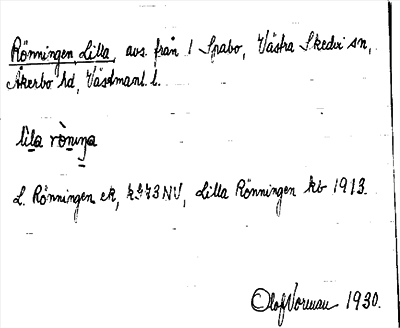 Rönningen, Lilla, avs. från 1 Spabo, Västra Skedvi sn,
Åkerbo hd, Västmanl. l.
lila rònıŋa
L. Rönningen ek, kS73NV, Lilla Rönningen kb 1913.
Olof Vorman 1930.